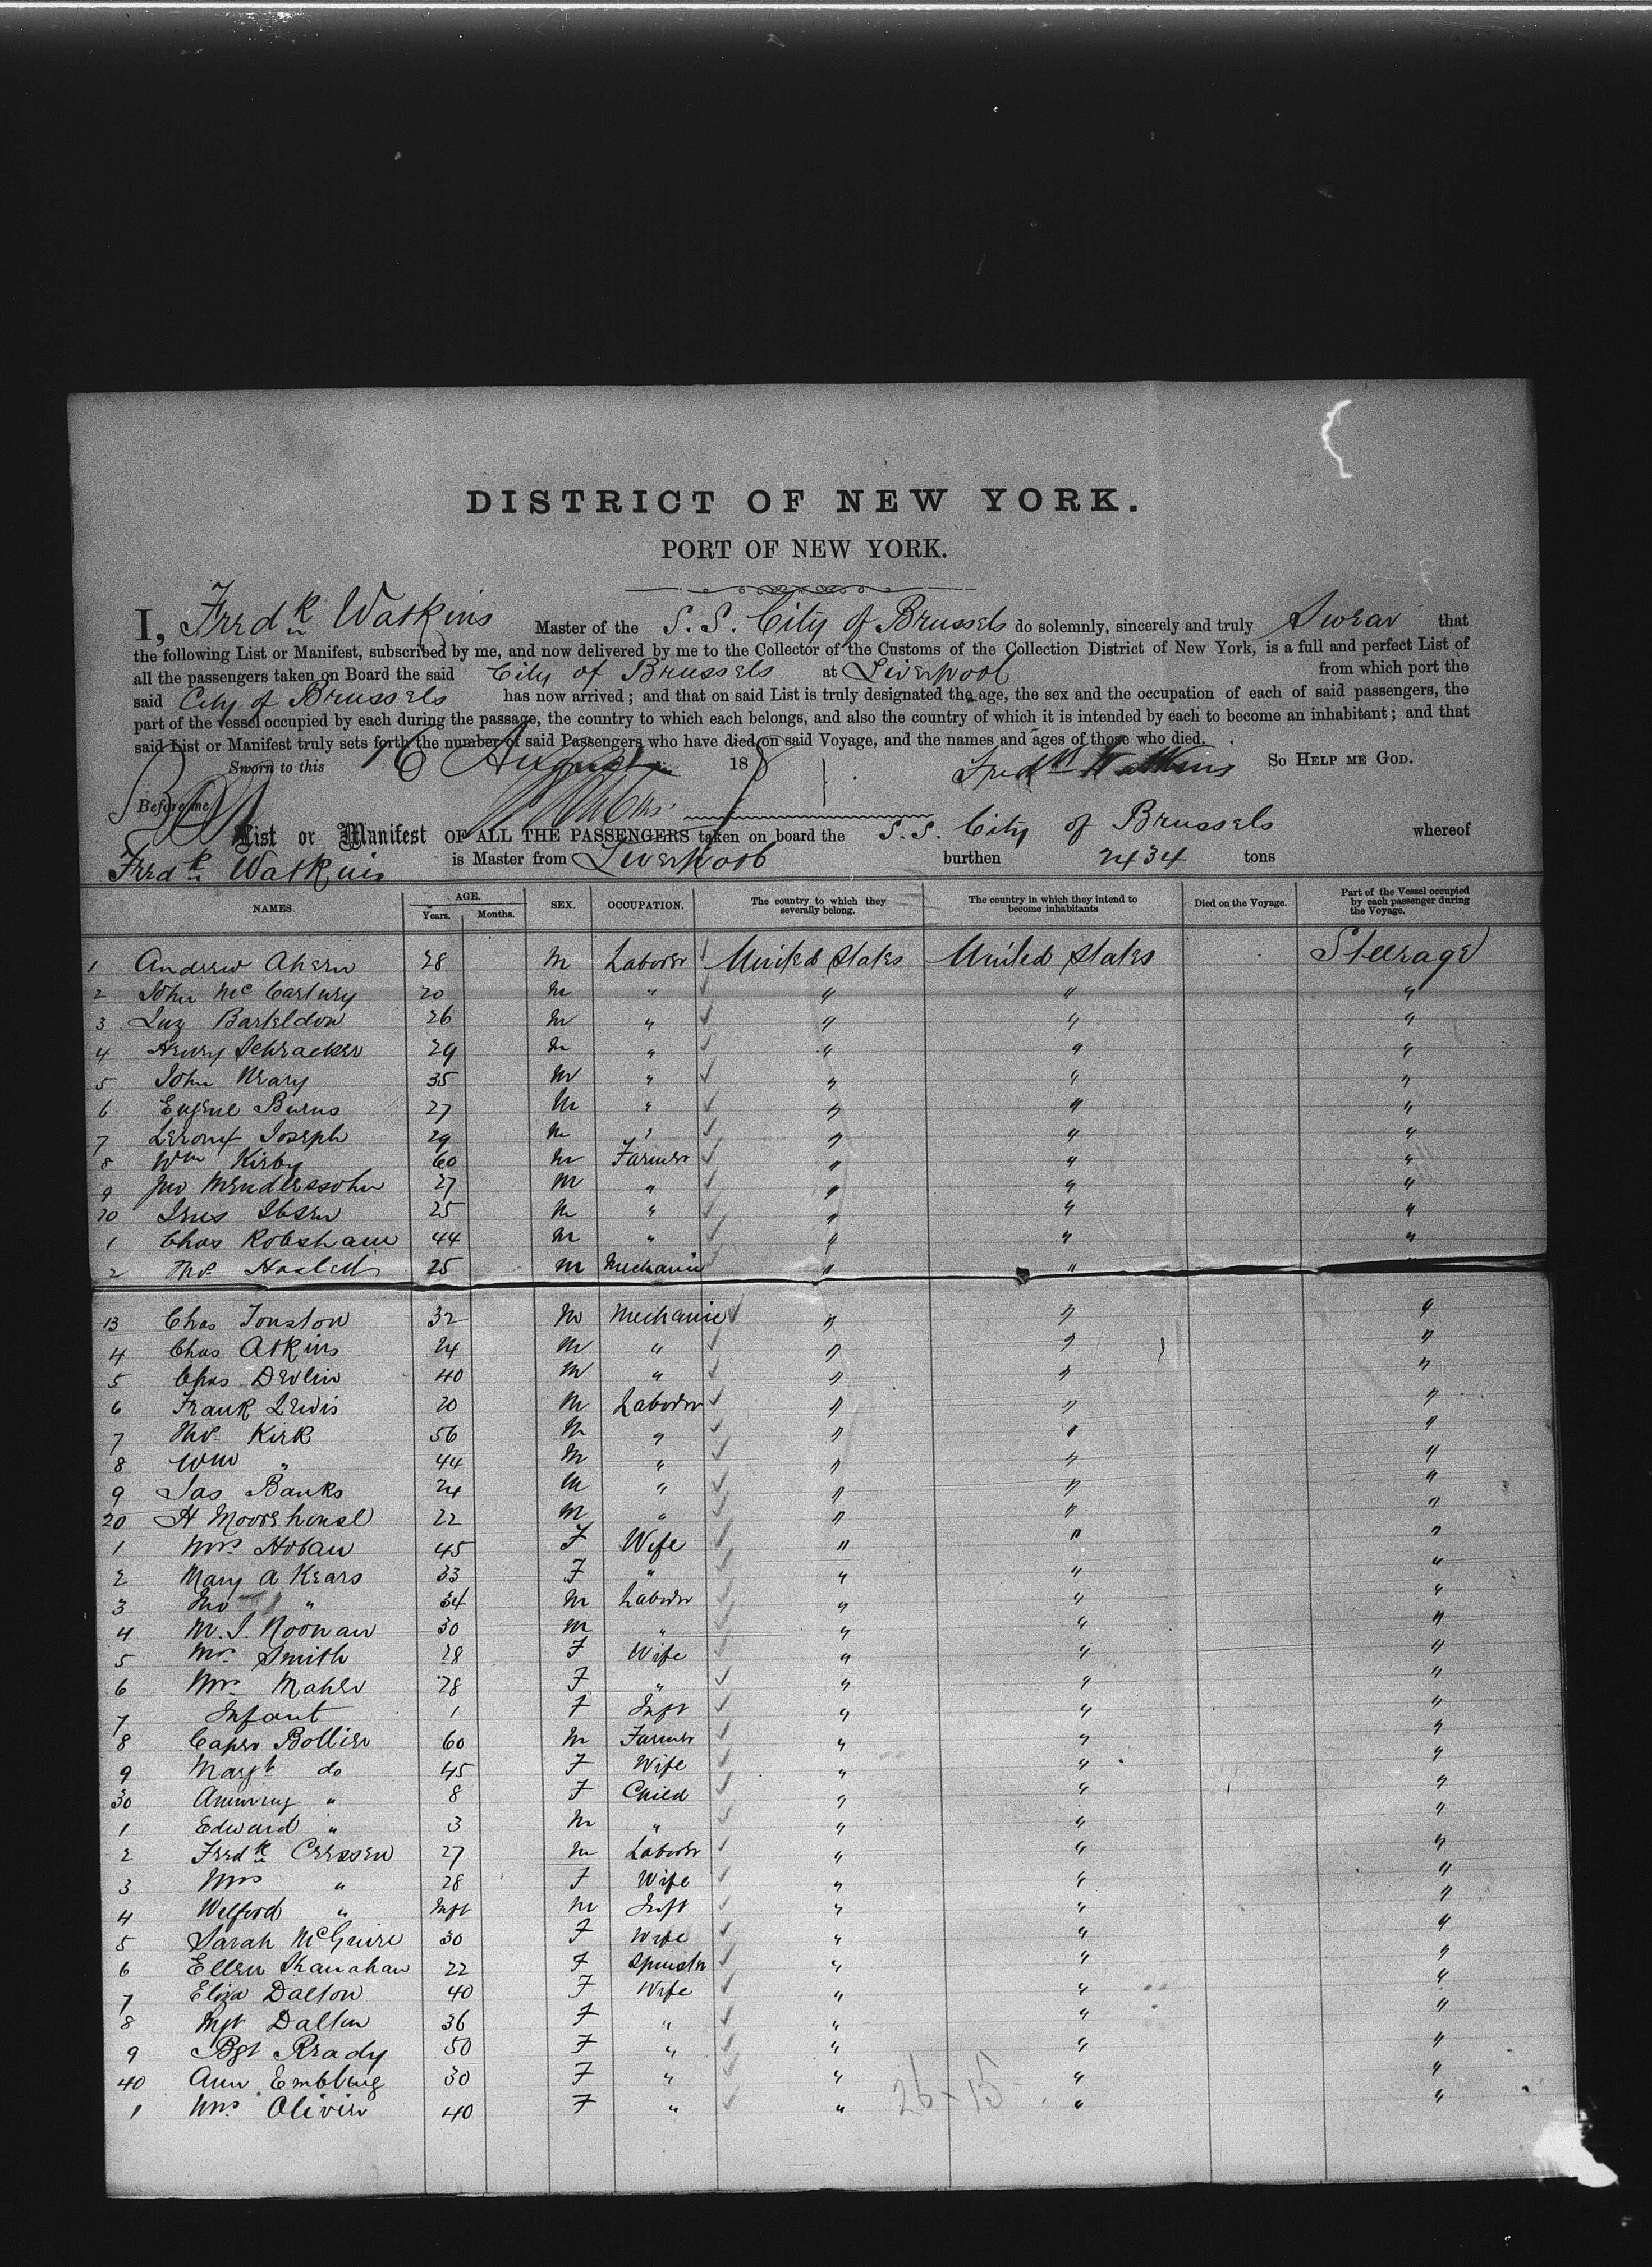 DISTRICT OF NEW YORK.
PORT OF NEW YORK.
I, Fredk Watkins Master of the S. S. City of Brussels do solemnly, sincerely and truly Swear that
the following List or Manifest, subscribed by me, and now delivered by me to the Collector of the Customs of the Collection District of New York, is a full and perfect List of
all the passengers taken on Board the said City of Brussels at Liverpool from which port the
said City of Brussels has now arrived; and that on said List is truly designated the age, the sex and the occupation of each of said passengers, the
part of the vessel occupied by each during the passage, the country to which each belongs, and also the country of which it is intended by each to become an inhabitant; and that
said List or Manifest truly sets forth the number of said Passengers who have died on said Voyage, and the names and ages of those who died.
Sworn to this August 18 Fredk Watkins So HELP ME GOD.
Before me
List or Manifest OF ALL THE PASSENGERS taken on board the S. S. City of Brussels whereof
Fredk Watkins is Master from Liverpool burthen 2434 tons
NAMES. AGE. Years. Months. SEX. OCCUPATION. The country to which they severally belong. The country in which they intend to become inhabitants Died on the Voyage. Part of the Vessel occupied by each passenger during the Voyage.
1 Andrew Ahern 28 M Laborer United States United States Steerage
2 John McCartney 20 M " " " "
3 26 M " " " "
4 Henry Schracker 29 M " " " "
5 John 35 M " " " "
6 Eugene Burns 27 M " " " "
7 Joseph 29 M " " " "
8 Wm Kirby 60 M Farmer " " "
9 Jno Mendelssohn 27 M " " " "
10 Ibsen 25 M " " " "
1 Chas Robsham 44 M " " " "
2 Thos 25 M Mechanic " " "
13 Chas Tonston 32 M Mechanic " " "
4 Chas Atkins 24 M " " " "
5 Chas Devlin 40 M " " " "
6 Frank Lewis 20 M Laborer " " "
7 Thos Kirk 56 M " " " "
8 Wm " 44 M " " " "
9 Jas Banks 24 M " " " "
20 H 22 M " " " "
1 Mrs Hoban 45 F Wife " " "
2 Mary A Kears 33 F " " " "
3 " 34 M Laborer " " "
4 M. J. Noonan 30 M " " " "
5 Mrs Smith 28 F Wife " " "
6 Mrs Maher 28 F " " " "
7 Infant 1 F Inft " " "
8 Bollier 60 M Farmer " " "
9 Margt do 45 F Wife " " "
30 " 8 F Child " " "
1 Edward " 3 M " " " "
2 Fredk 27 M Laborer " " "
3 Mrs " 28 F Wife " " "
4 Welford " Inft M Inft " " "
5 Sarah McGuire 30 F Wife " " "
6 Ellen 22 F Spinster " " "
7 Eliza Dalton 40 F Wife " " "
8 Mgt Dalton 36 F " " " "
9 Bgt 50 F " " " "
40 Ann Embling 30 F " " " "
1 Mrs Olivier 40 F " " " "
26 - 15